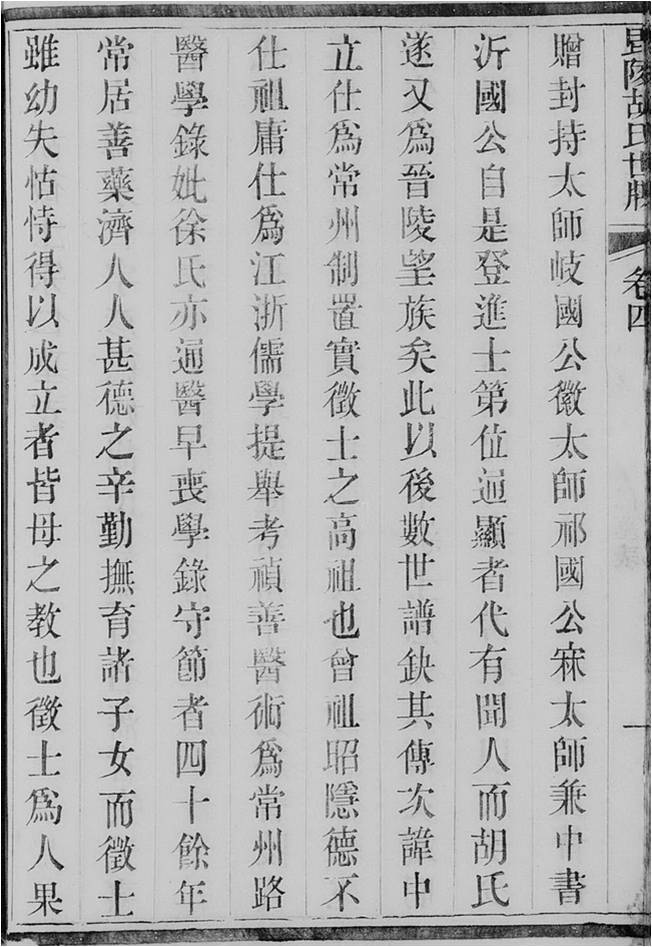 毘陵胡氏世牒 卷四 一
贈封持太師岐國公徽太師祁國公寀太師兼中書
沂國公自是登進士第位通顯者代有聞人而胡氏
遂又為晉陵望族矣此以後數世譜鈌其傳次諱中
立仕為常州制置實徵士之高祖也曾祖昭隱德不
仕祖庸仕為江浙儒學提舉考禎善醫術為常州路
醫學錄妣徐氏亦通醫早喪學錄守節者四十餘年
常居善藥濟人人甚德之辛勤撫育諸子女而徵士
雖幼失怙恃得以成立者皆母之教也徵士為人果